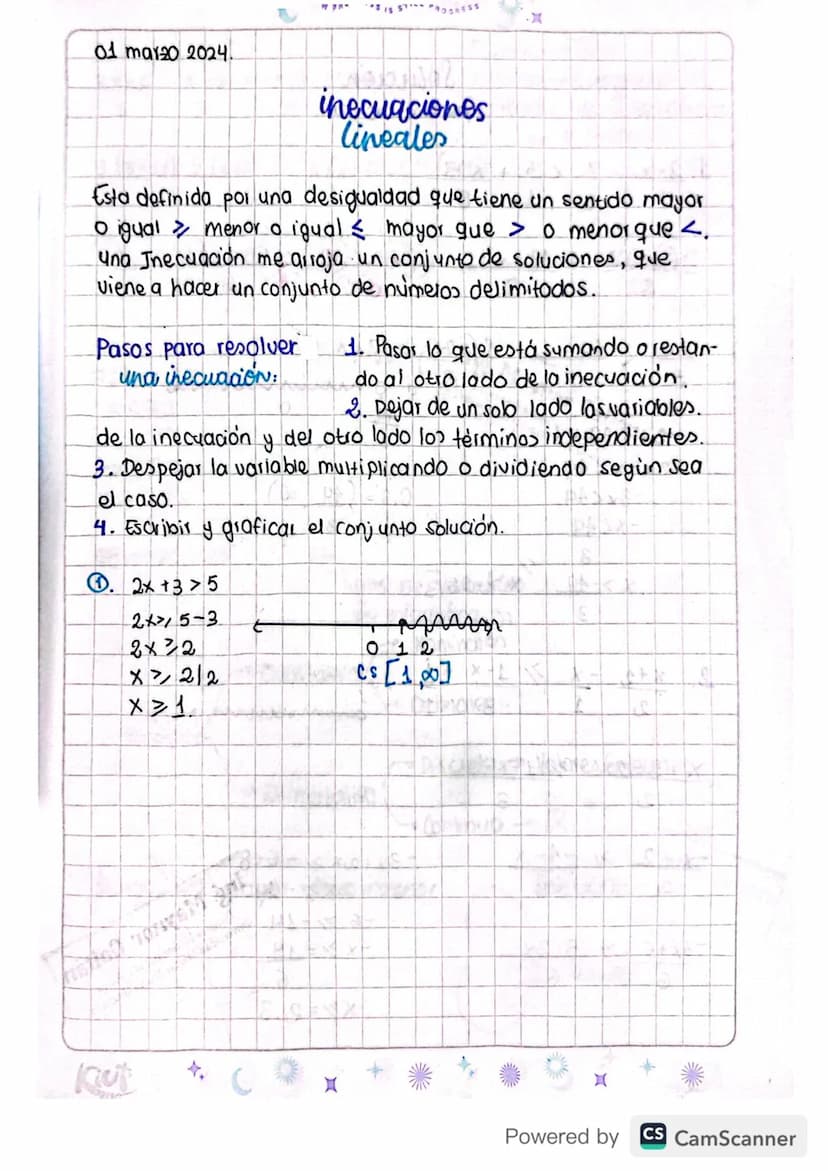 01 marzo 2024.
inecuaciones
lineales
Esta definida por una desigualdad que tiene un sentido mayor
o igual ⩾ menor o igual ⩽ mayor que > o menor que <.
una Inecuación me arroja un conjunto de soluciones, que
viene a hacer un conjunto de números delimitados.
Pasos para resolver
una inecuación:
1. Pasar lo que está sumando o restan-
do al otro lado de la inecuación.
2. Dejar de un solo lado las variables.
de la inecuación y del otro lado los términos independientes.
3. Despejar la variable multiplicando o dividiendo según sea
el caso.
4. Escribir y graficar el conjunto solución.
①. 2x +3 > 5
2x ⩾ 5-3
2x ⩾ 2
x ⩾ 2/2
x ⩾ 1.
0 1 2
CS [1,∞]
Kiut
Powered by CS CamScanner